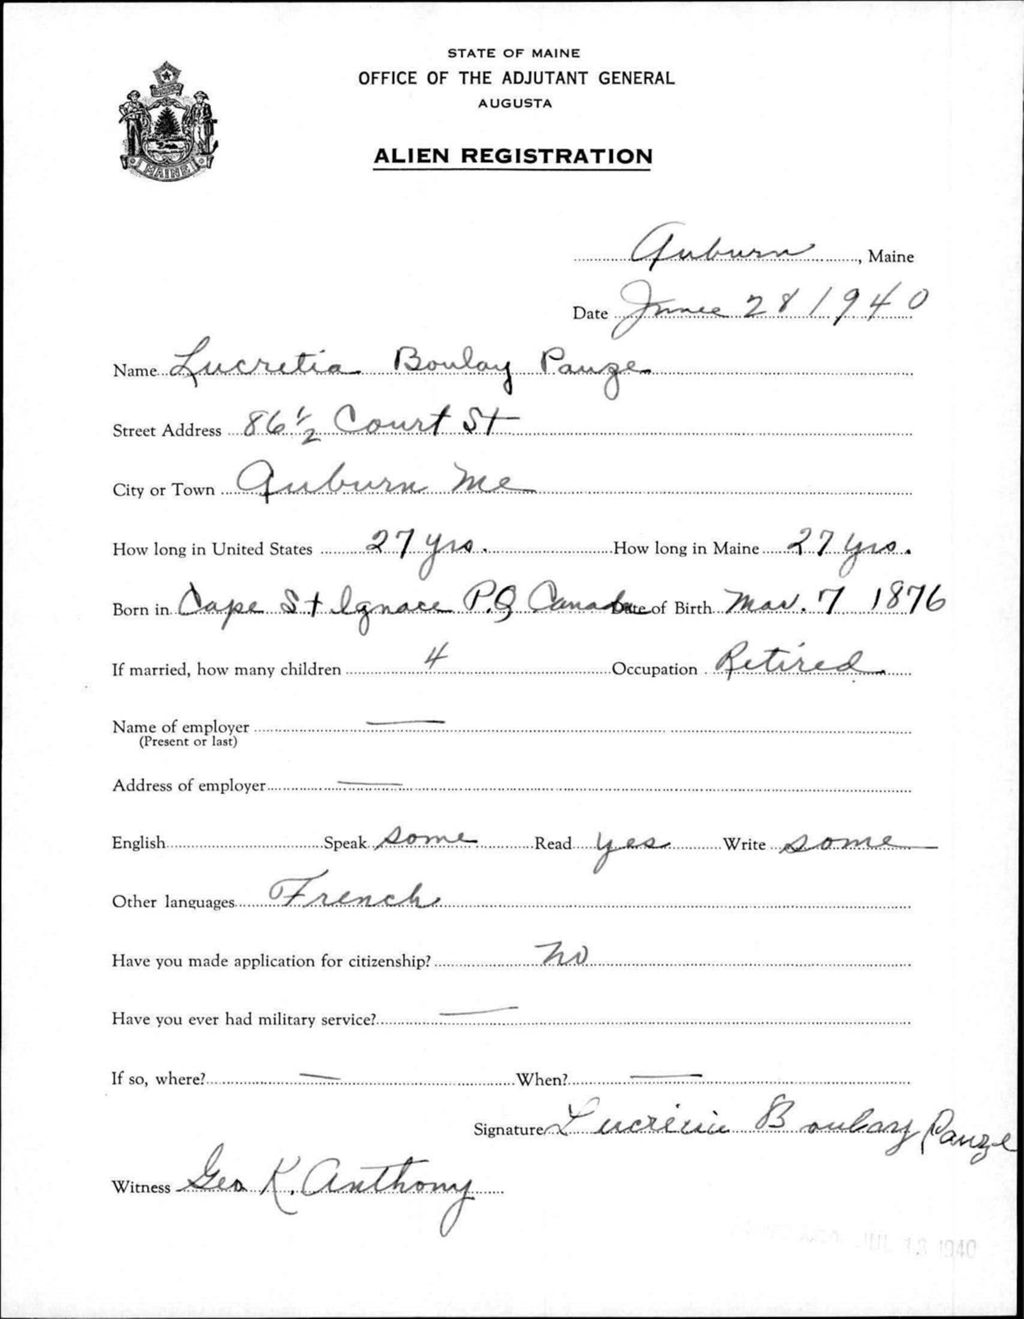 STATE OF MAINE
OFFICE OF THE ADJUTANT GENERAL
AUGUSTA
ALIEN REGISTRATION
MAINE
Auburn, Maine
Date June 28 1940
Name Lucretia Boulay Pauze
Street Address 86 1/2 Court St
City or Town Auburn Me
How long in United States 27 yrs. How long in Maine 27 yrs.
Born in Cape St Ignace P.Q Canada Date of Birth Mar. 7 1876
If married, how many children 4 Occupation Retired
Name of employer —
(Present or last)
Address of employer —
English Speak some Read yes Write some
Other languages French
Have you made application for citizenship? No
Have you ever had military service? —
If so, where? — When? —
Signature Boulay Pauze
Witness Geo K. Anthony
JUL 13 1940